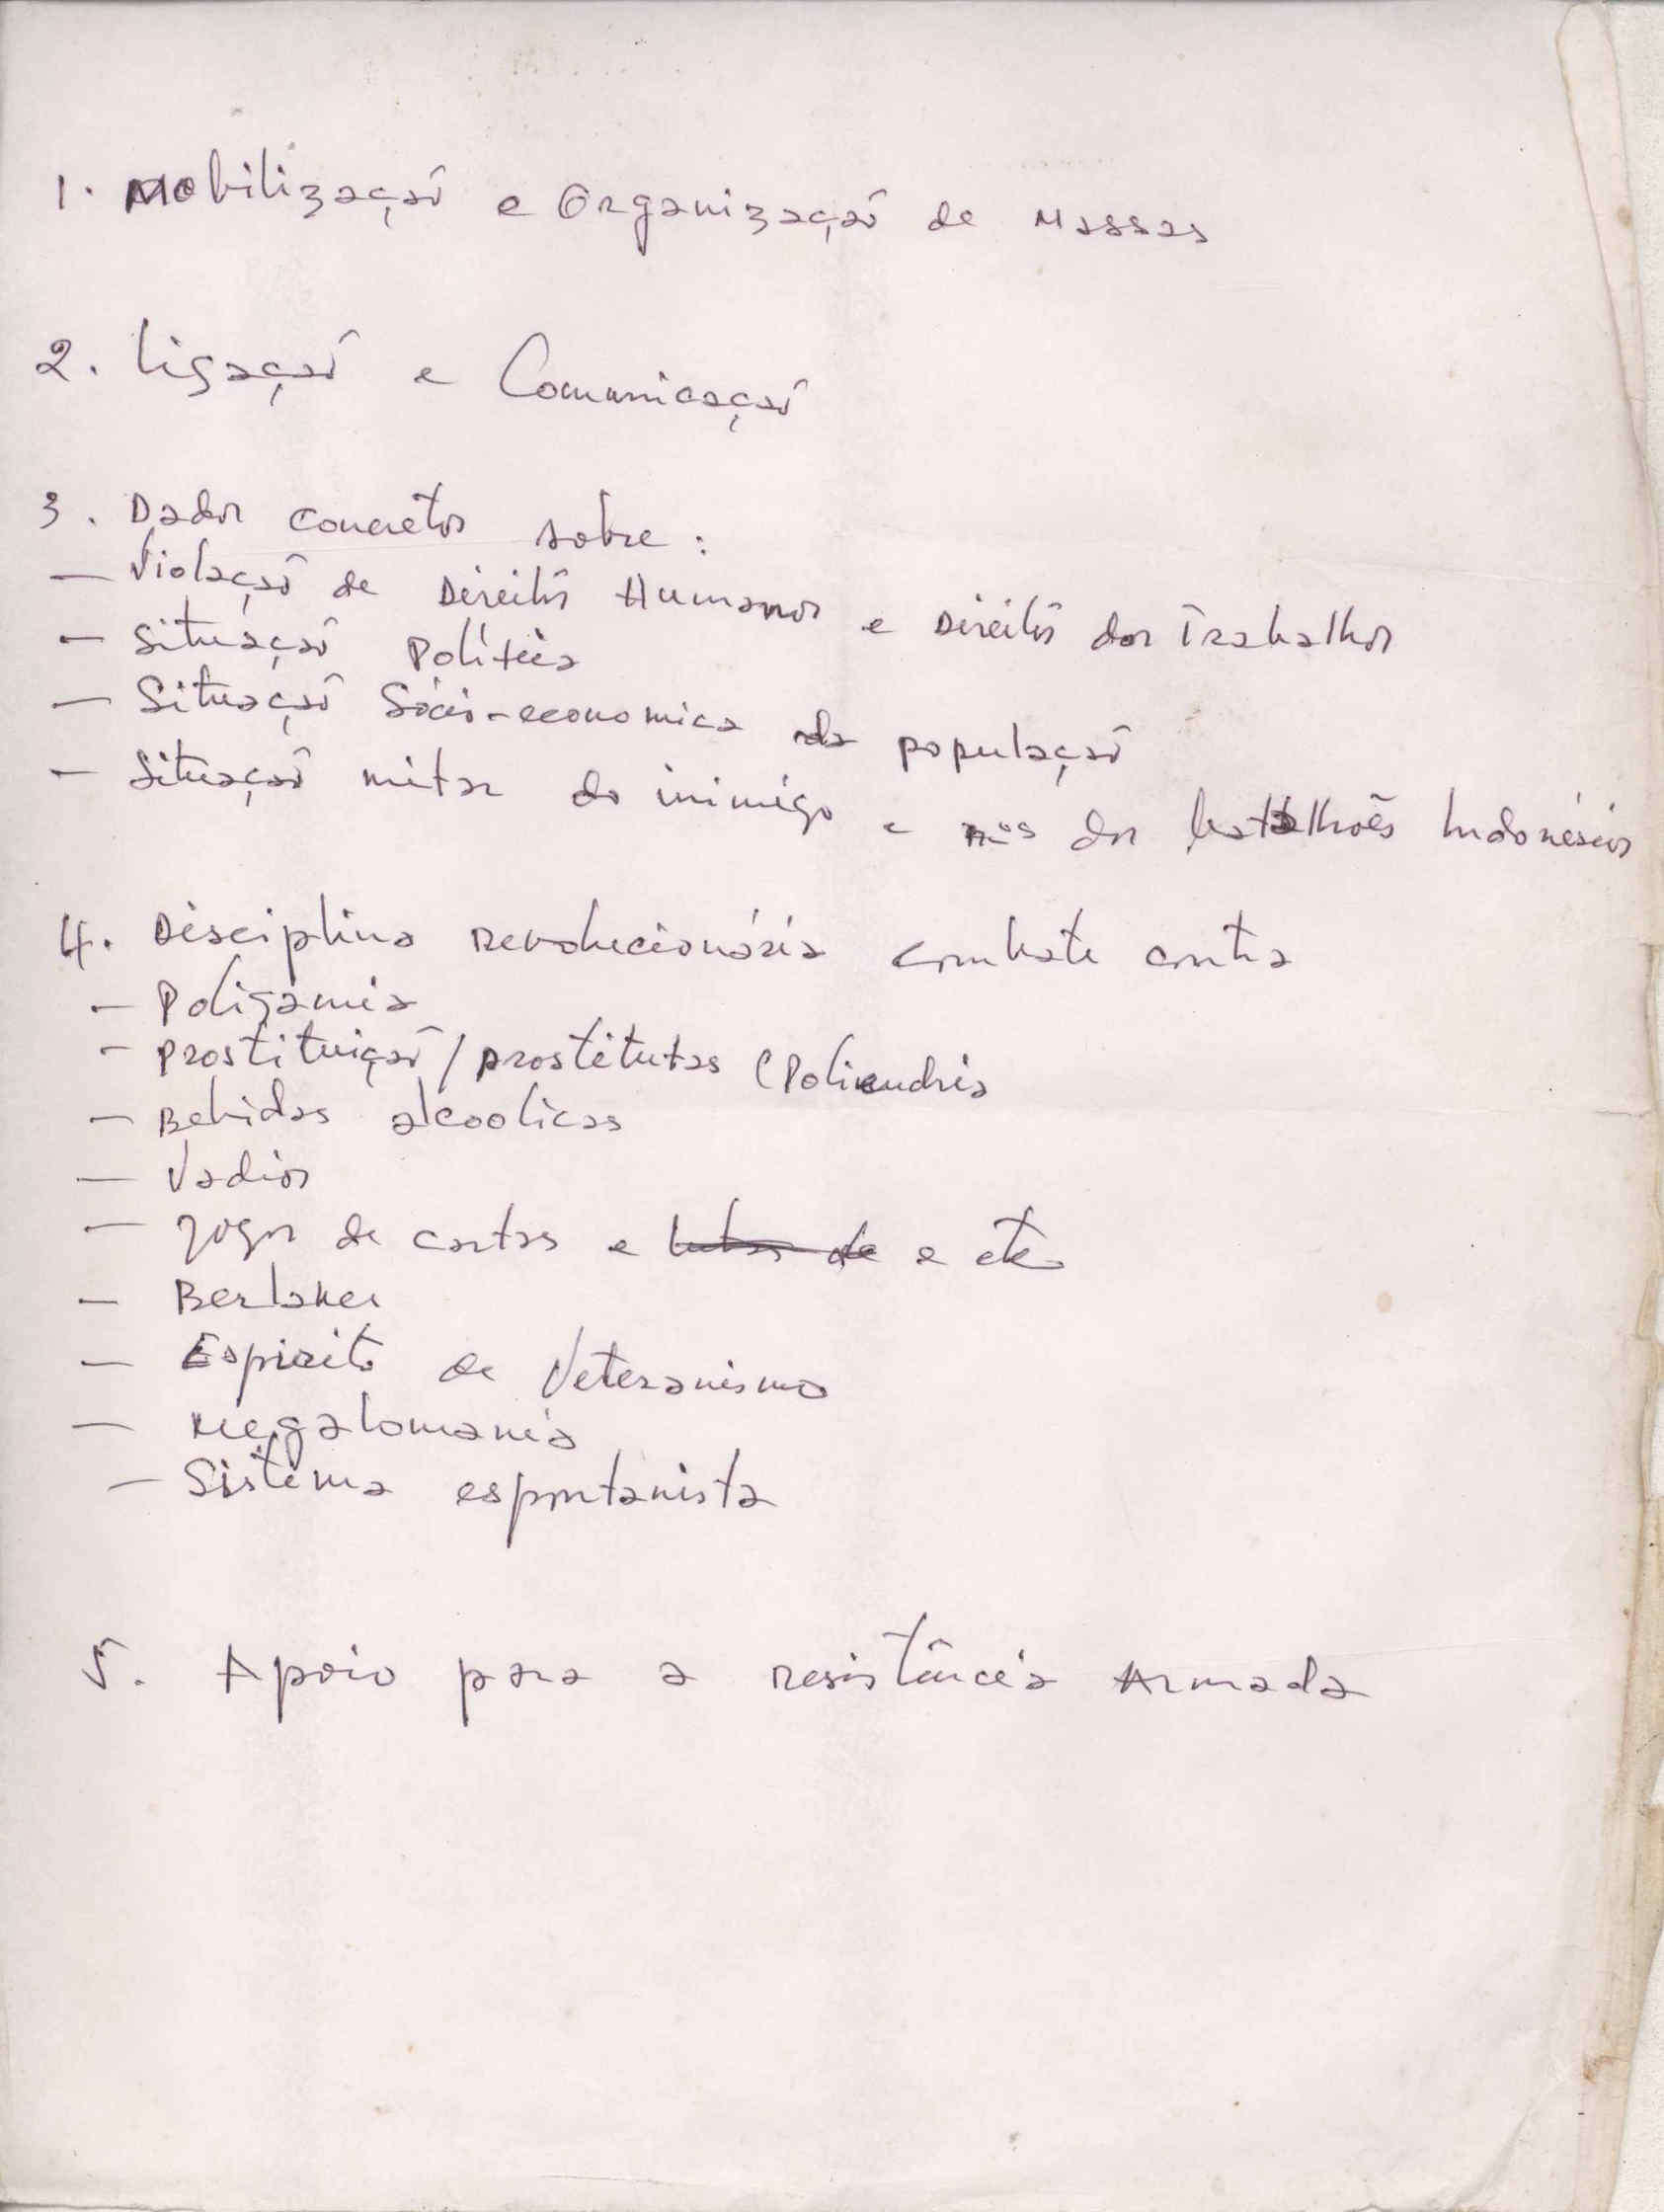 1. Mobilização e Organização de Massas
2. Ligação e Comunicação
3. Dados concretos sobre:
— Violação de Direitos Humanos e Direitos dos Trabalhos
— Situação Política
— Situação Sócio-economica da população
— Situação mitar do inimigo e nºs dos batalhões Indonésios
4. Disciplina revolucionária combate contra
— Poligamia
— Prostituição / prostitutas (Poliandria
— Bebidas alcoolicas
— Vadios
— Jogos de cartas e e etc
— Berlaker
— Espirito de Veteranismo
— Megalomania
— Sistema espontanista
5. Apoio para a resistência Armada